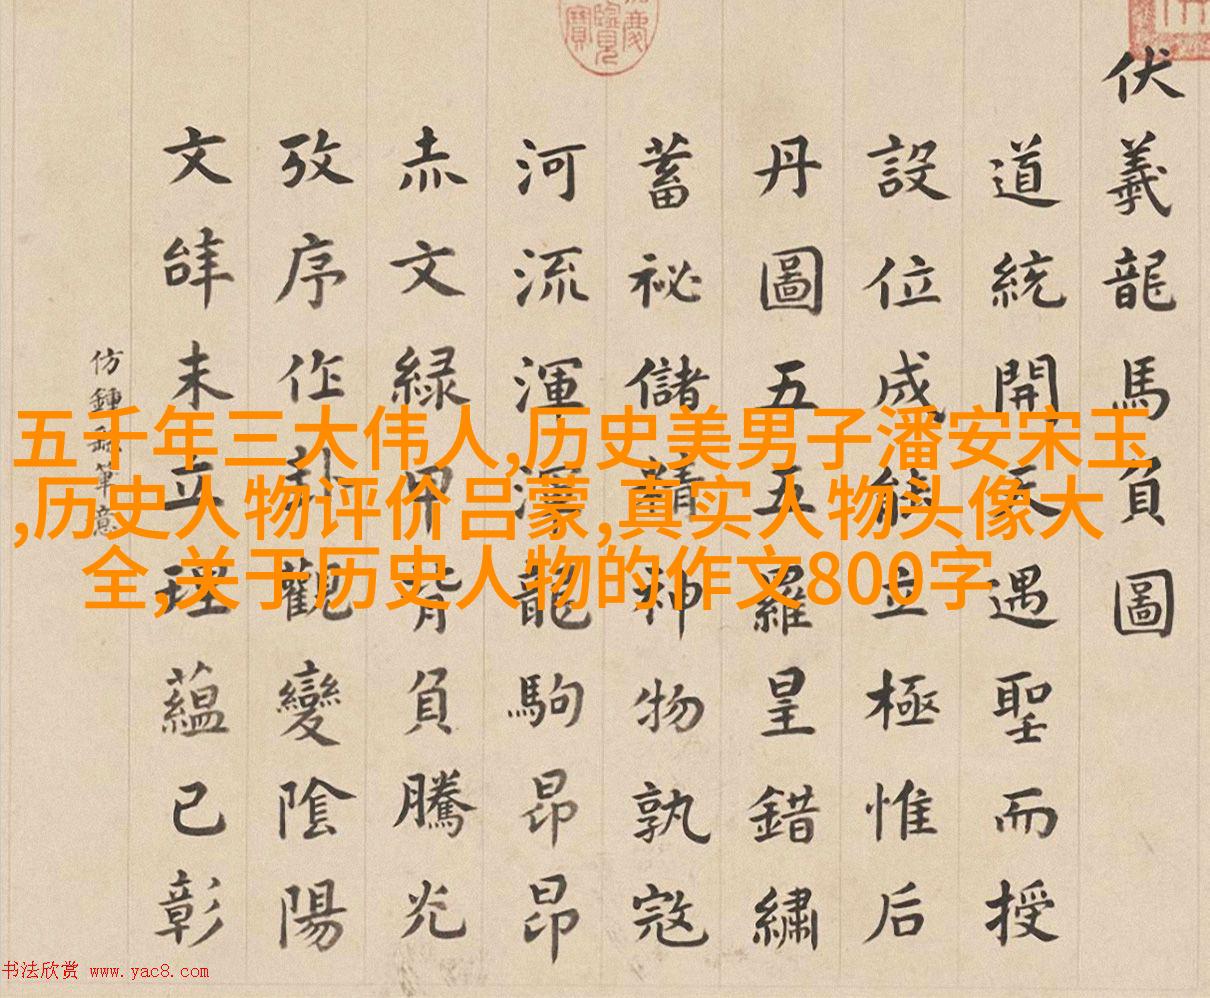 伏羲龍馬負圖
道統開天遇聖而授
設位成能立極惟后
丹圖五五羅皇錯繡
蓄祕儲精神物孰寇
河流渾渾龍駒昂昂
赤文緑甲背負騰光
攷序作卦觀變陰陽
文辝未立理蘊已彰
仿鍾繇筆意
五千年三大伟人,历史美男子潘安宋玉
,历史人物评价吕蒙,真实人物头像大
全,关于历史人物的作文800字
书法欣赏 www.yac8.com